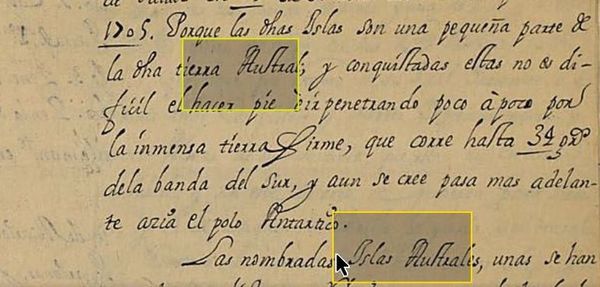 1705. Porque las dhas Islas son una pequeña parte de
la dha tierra Austral; y conquistadas estas no es di-
ficil el hacer pie è ir penetrando poco à poco por
la inmensa tierra firme, que corre hasta 34 grds
dela banda del Sur, y aun se cree pasa mas adelan-
te azia el polo Antartico.
Las nombradas Islas Australes, unas se han